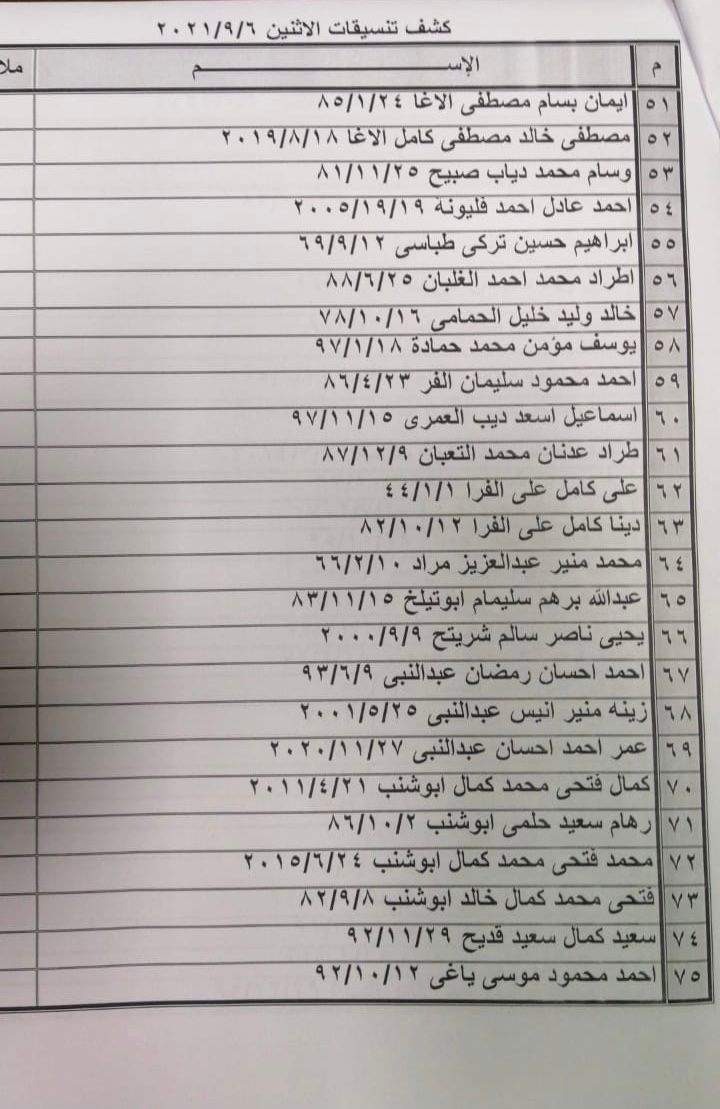 كشف تنسيقات الاثنين ٢٠٢١/٩/٦
م الإســـــــــــم ملا
٥١ ايمان بسام مصطفى الاغا ٨٥/١/٢٤
٥٢ مصطفى خالد مصطفى كامل الاغا ٢٠١٩/٨/١٨
٥٣ وسام محمد دياب صبيح ٨١/١١/٢٥
٥٤ احمد عادل احمد فليونة ٢٠٠٥/١٩/١٩
٥٥ ابراهيم حسين تركى طباسى ٦٩/٩/١٢
٥٦ اطراد محمد احمد الغلبان ٨٨/٦/٢٥
٥٧ خالد وليد خليل الحمامى ٧٨/١٠/١٦
٥٨ يوسف مؤمن محمد حمادة ٩٧/١/١٨
٥٩ احمد محمود سليمان الفر ٨٦/٤/٢٣
٦٠ اسماعيل اسعد ديب العمرى ٩٧/١١/١٥
٦١ طراد عدنان محمد التعبان ٨٧/١٢/٩
٦٢ على كامل على الفرا ٤٤/١/١
٦٣ دينا كامل على الفرا ٨٢/١٠/١٢
٦٤ محمد منير عبدالعزيز مراد ٦٦/٢/١٠
٦٥ عبدالله برهم سليمام ابوتيلخ ٨٣/١١/١٥
٦٦ يحيى ناصر سالم شريتح ٢٠٠٠/٩/٩
٦٧ احمد احسان رمضان عبدالنبى ٩٣/٦/٩
٦٨ زينه منير انيس عبدالنبى ٢٠٠١/٥/٢٥
٦٩ عمر احمد احسان عبدالنبى ٢٠٢٠/١١/٢٧
٧٠ كمال فتحى محمد كمال ابوشنب ٢٠١١/٤/٢١
٧١ رهام سعيد حلمى ابوشنب ٨٦/١٠/٢
٧٢ محمد فتحى محمد كمال ابوشنب ٢٠١٥/٦/٢٤
٧٣ فتحى محمد كمال خالد ابوشنب ٨٢/٩/٨
٧٤ سعيد كمال سعيد قديح ٩٢/١١/٢٩
٧٥ احمد محمود موسى ياغى ٩٢/١٠/١٢